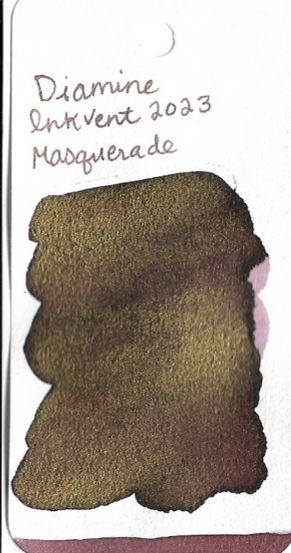 Diamine
Inkvent 2023
Masquerade